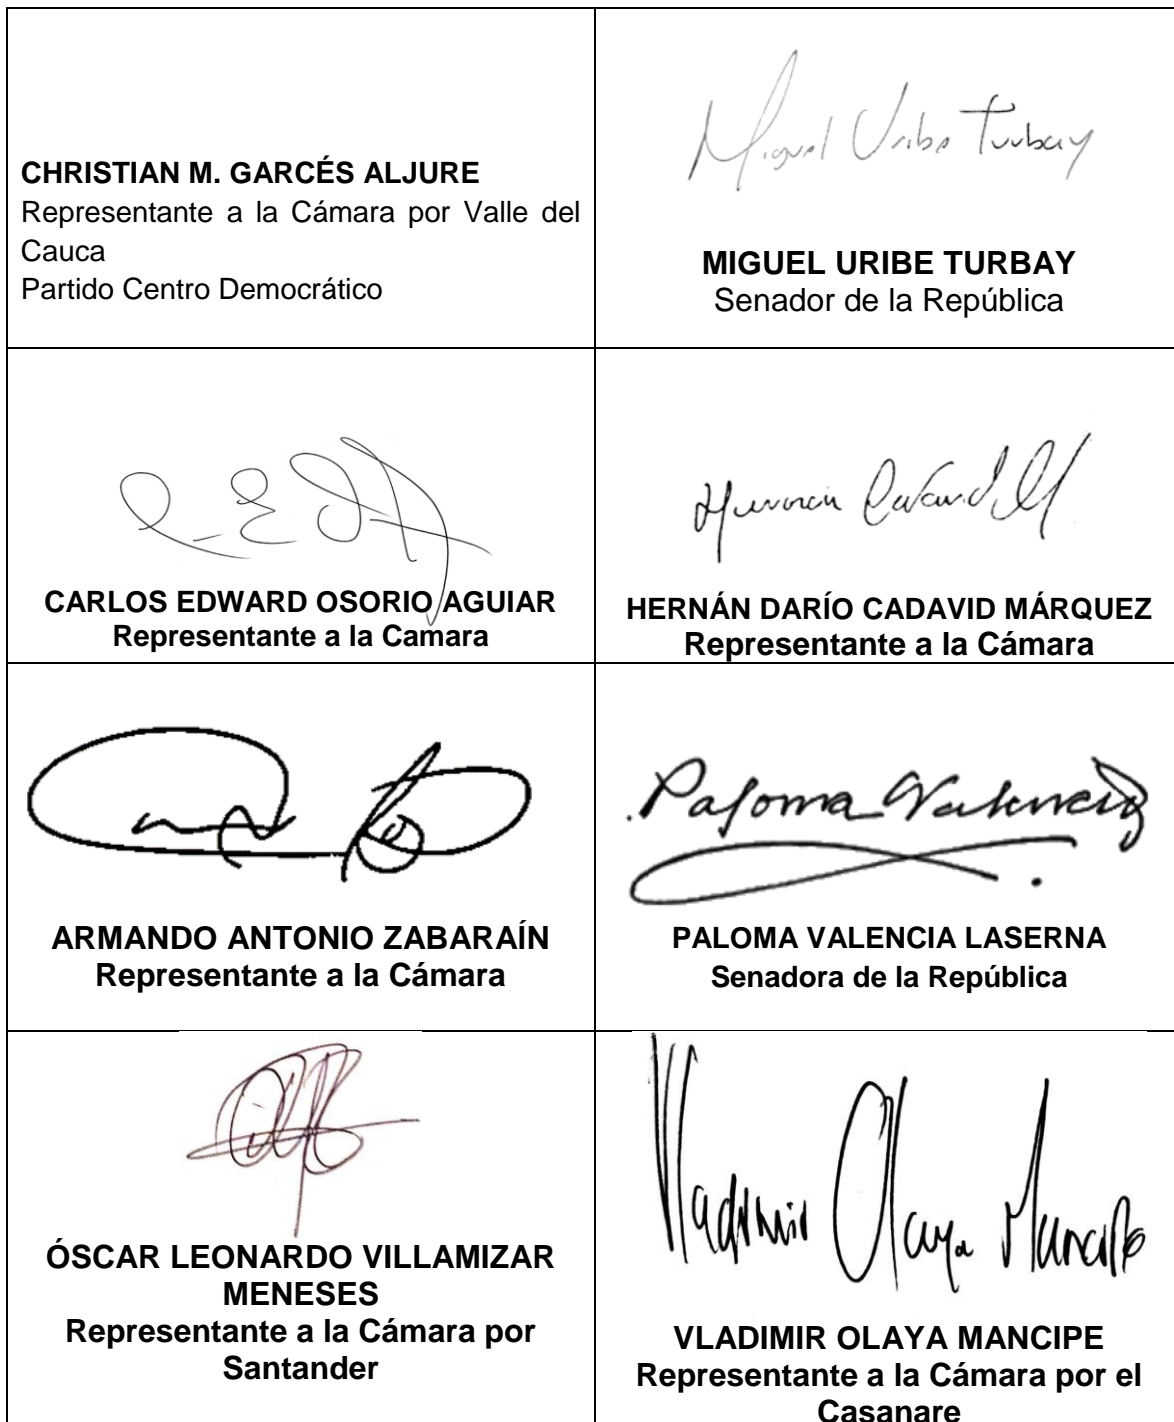 CHRISTIAN M. GARCÉS ALJURE
Representante a la Cámara por Valle del
Cauca
Partido Centro Democrático
Miguel Uribe Turbay
MIGUEL URIBE TURBAY
Senador de la República
CARLOS EDWARD OSORIO AGUIAR
Representante a la Camara
Hernán Cadavid M
HERNÁN DARÍO CADAVID MÁRQUEZ
Representante a la Cámara
ARMANDO ANTONIO ZABARAÍN
Representante a la Cámara
Paloma Valencia
PALOMA VALENCIA LASERNA
Senadora de la República
ÓSCAR LEONARDO VILLAMIZAR
MENESES
Representante a la Cámara por
Santander
Vladimir Olaya Mancipe
VLADIMIR OLAYA MANCIPE
Representante a la Cámara por el
Casanare